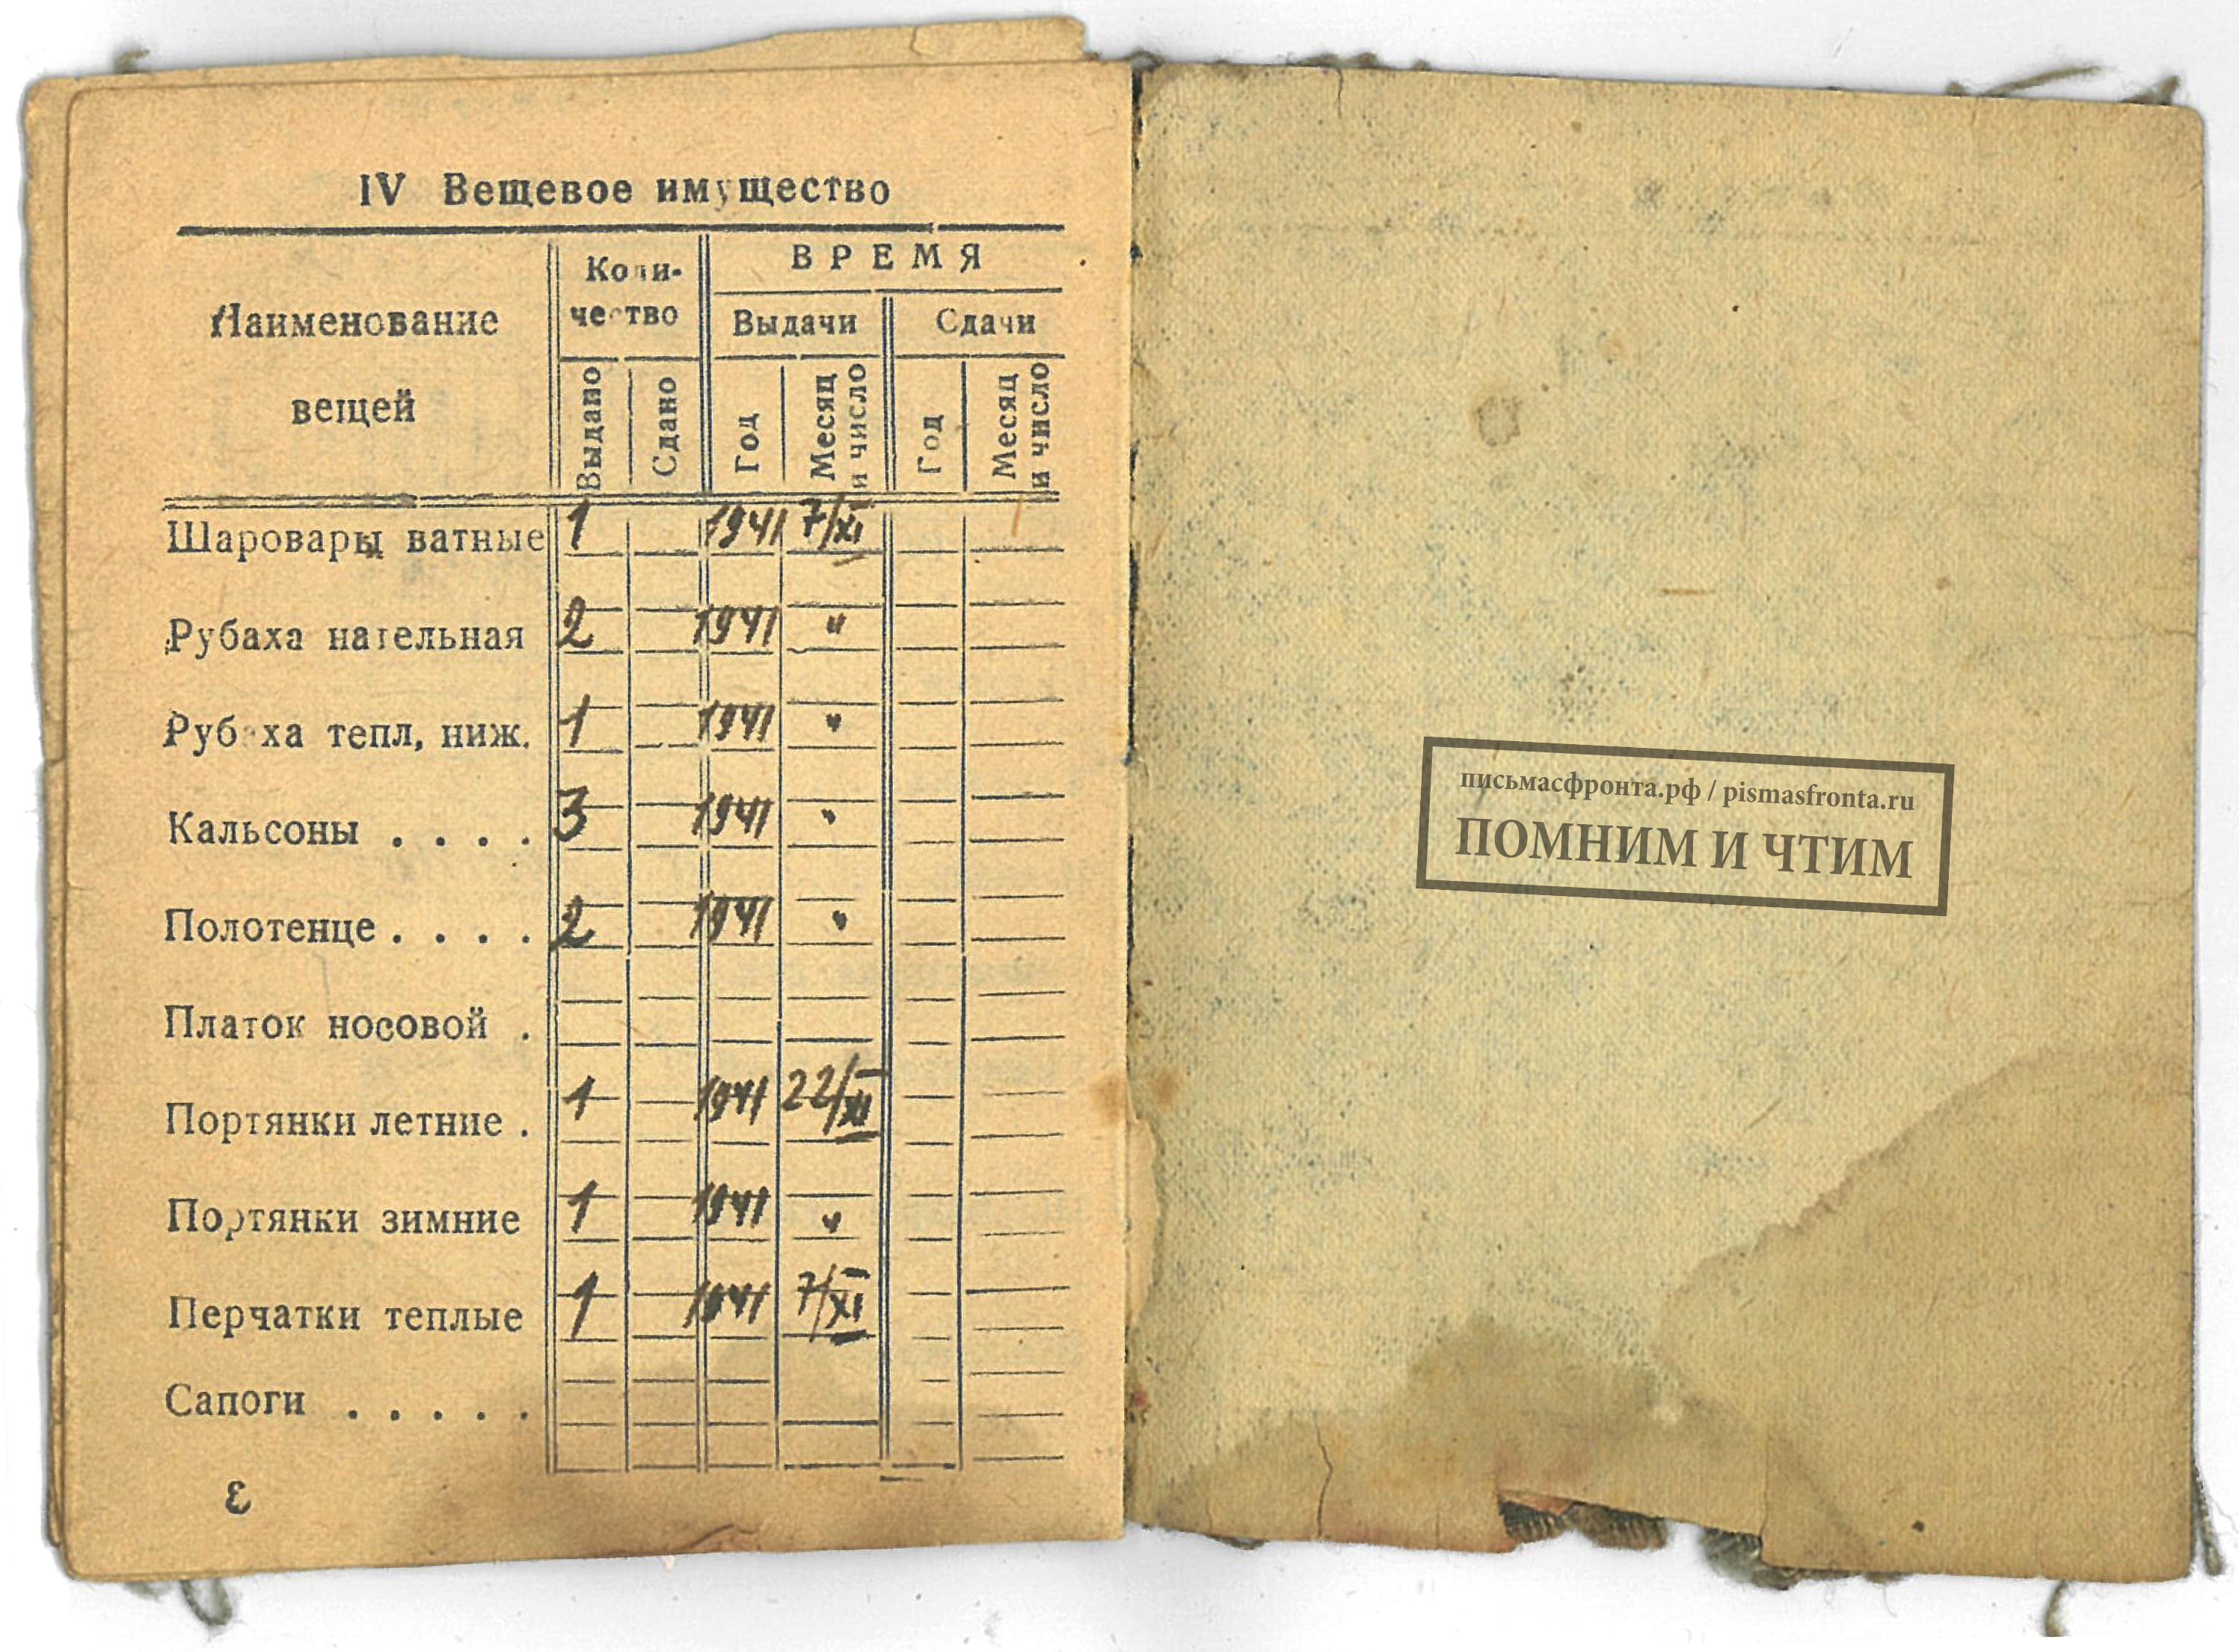 IV Вещевое имущество
Наименование вещей
Количество
ВРЕМЯ
Выдачи
Сдачи
Выдано
Сдано
Год
Месяц и число
Год
Месяц и число
Шаровары ватные 1 1941 7/XI
Рубаха нательная 2 1941 "
Рубаха тепл, ниж. 1 1941 "
Кальсоны . . . . 3 1941 "
Полотенце . . . . 2 1941 "
Платок носовой .
Портянки летние . 1 1941 22/XI
Портянки зимние 1 1941 "
Перчатки теплые 1 1941 7/XI
Сапоги . . . . .
3
письмасфронта.рф / pismasfronta.ru
ПОМНИМ И ЧТИМ